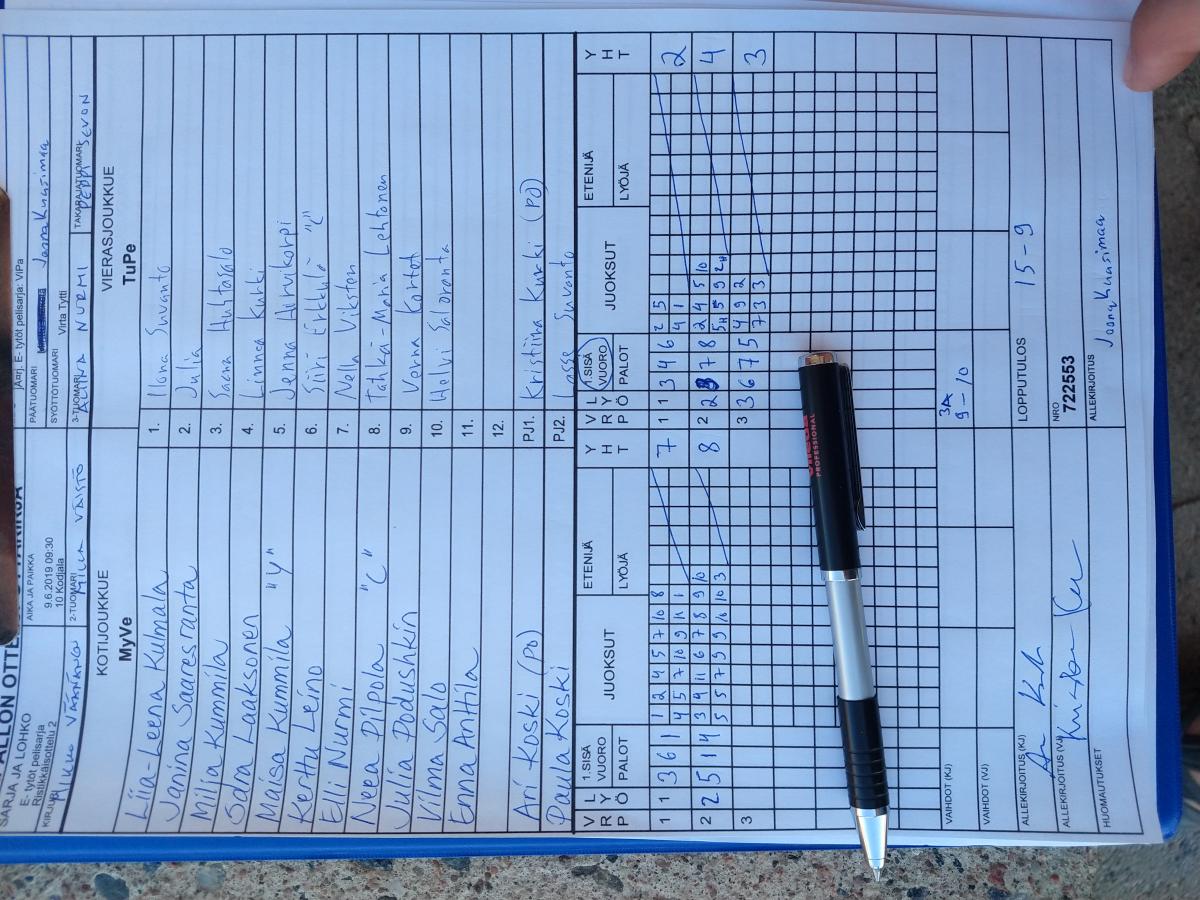 SARJA JA LOHKO
E- tytöt pelisarja
Ristikkäisottelu 2
AIKA JA PAIKKA
9.6.2019 09:30
10 Kodjala
PÄÄTUOMARI
Jaana Kuusimaa
SYÖTTÖTUOMARI Virta Tytti
2-TUOMARI
3-TUOMARI ALIINA NURMI
TAKARAJATUOMARI SEVON
KOTIJOUKKUE
MyVe
VIERASJOUKKUE
TuPe
Liia-Leena Kulmala 1. Ilona Suvanto
Janina Saaresranta 2. Julia
Milja Kummila 3. Saana Huhtasalo
Sara Laaksonen 4. Linnea Kurki
Maisa Kummila "Y" 5. Jenna Hirvikorpi
Kerttu Leino 6. Siiri Erkkilä "C"
Elli Nurmi 7. Nella Viksten
Neea Pilpola "C" 8. Tähkä-Maria Lehtonen
Julia Podushkin 9. Vanna Kortet
Vilma Salo 10. Helvi Saloranta
Enna Anttila 11.
12.
Ari Koski (PO) PJ1. Kristiina Kurki (PO)
Paula Koski PJ2. Lasse Suvanto
V R P L Y Ö 1.SISÄ VUORO PALOT JUOKSUT ETENIJÄ LYÖJÄ Y H T V R P L Y Ö 1.SISÄ VUORO PALOT JUOKSUT ETENIJÄ LYÖJÄ Y H T
1 1 3 6 1 1 2 4 5 7 10 8 7 1 1 3 4 6 2 5 2
4 5 7 10 9 11 1 4 1
2 2 5 1 4 3 4 11 6 7 8 9 10 8 2 2 7 8 2 4 5 10 4
5 5 7 9 9 10 10 3
3 3 3 6 7 5 4 9 2 3
7 3 3
VAIHDOT (KJ) 3A 9-10
VAIHDOT (VJ)
ALLEKIRJOITUS (KJ) LOPPUTULOS 15-9
ALLEKIRJOITUS (VJ) NRO 722553
HUOMAUTUKSET ALLEKIRJOITUS Jaana Kuusimaa
PROFESSIONAL